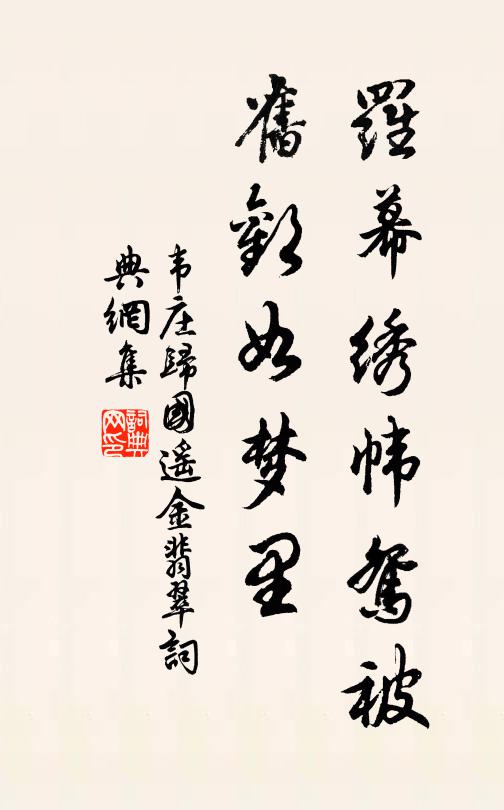 羅幕绣帏鸳被
舊歡如梦里
韦庄歸國遥金翡翠詞
典網集
詞典网印